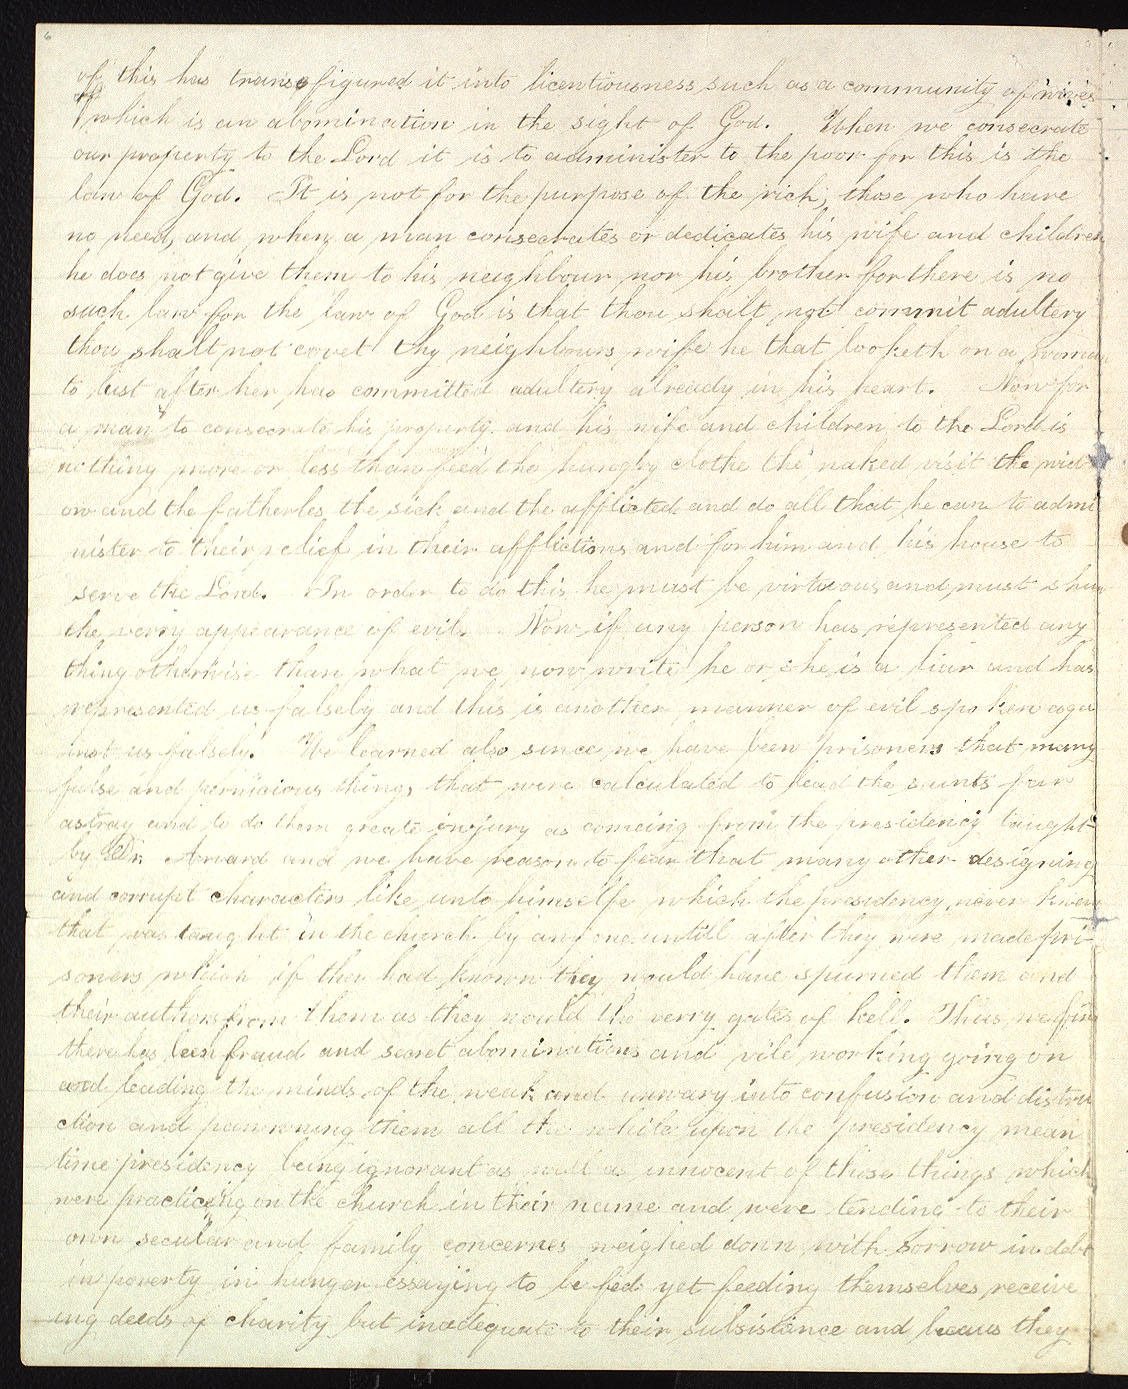 6
of this has transfigured it into licentiousness such as a community of wives
which is an abomination in the sight of God. When we consecrate
our property to the Lord it is to administer to the poor for this is the
law of God. It is not for the purpose of the rich, those who have
no need, and when a man consecrates or dedicates his wife and children
he does not give them to his neighbour nor his brother for there is no
such law for the law of God is that thou shalt not commit adultery
thou shalt not covet thy neighbours wife he that looketh on a woman
to lust after her has committed adultery already in his heart. Now for
a man to consecrate his property and his wife and children to the Lord is
nothing more or less than feed the hungry clothe the naked visit the wid-
ow and the fatherles the sick and the afflicted and do all that he can to admi
nister to their relief in their afflictions and for him and his house to
serve the Lord. In order to do this he must be virtuous and must shun
the verry appearance of evil. Now if any person has represented any
thing otherwise than what we now write he or she is a liar and has
represented us falsely and this is another manner of evil spoken aga
inst us falsely. We learned also since we have been prisoners that many
false and pernicious things that were calculated to lead the saints far
astray and to do them greate injury as comeing from the presidency taught
by Dr. Avard and we have reason to fear that many other designing
and corrupt characters like unto himselfe which the presidency never knew
that was taught in the church by any one untill after they were made pri-
soners which if they had known they would have spurned them and
their authors from them as they would the verry gates of hell. Thus we find
there has been fraud and secret abominations and vile working going on
and leading the minds of the weak and unwary into confusion and distru
ction and pawning them all the while upon the presidency mean
time presidency being ignorant as well as innocent of those things which
were practiceing on the church in their name and were tending to their
own secular and family concernes weighed down with sorrow in debt
in poverty in hunger essaying to be fed yet feeding themselves receive
ing deeds of charity but inadequate to their subsistance and becaus they